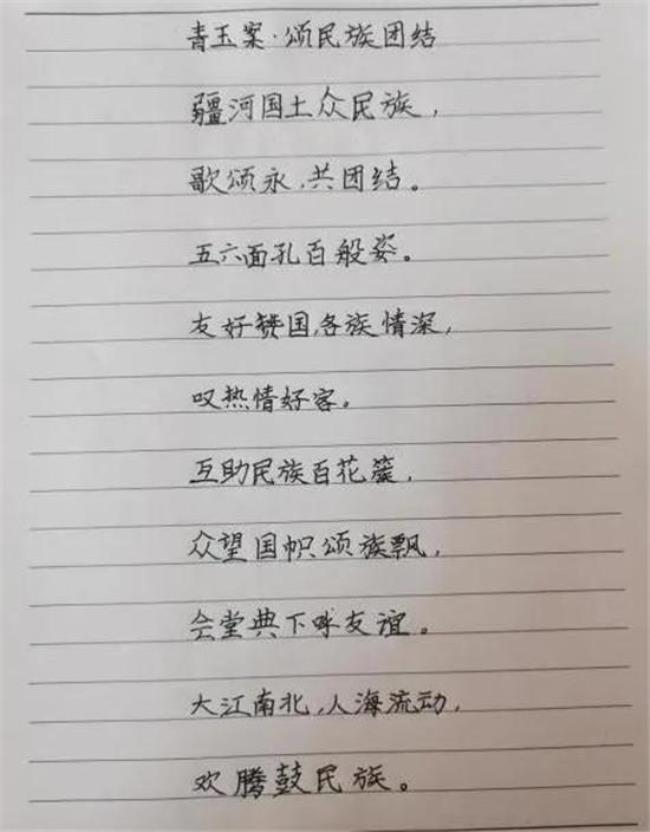 青玉案·颂民族团结
疆河国土众民族，
歌颂永，共团结。
五六面孔百般姿。
友好赞国，各族情深，
叹热情好客。
互助民族百花簇，
众望国帜颂族飘，
会堂典下呼友谊。
大江南北，人海流动，
欢腾鼓民族。